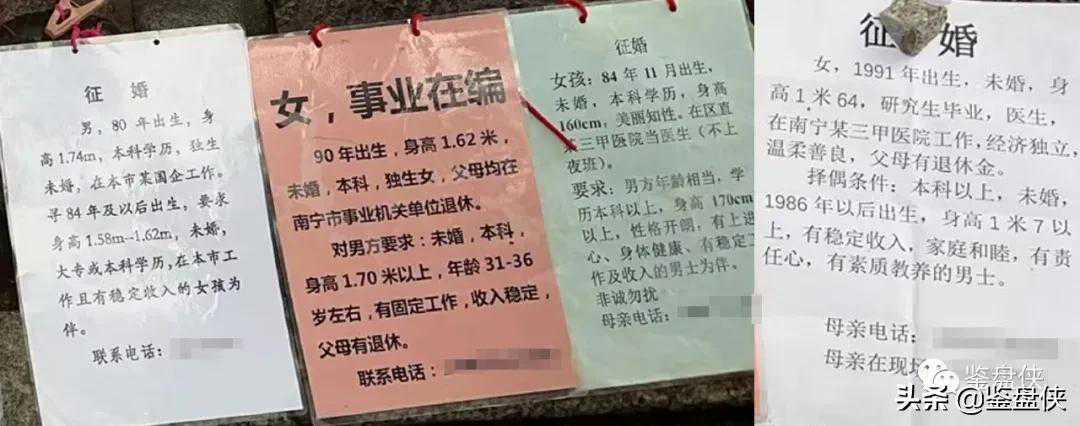 征 婚
男，80 年出生，身
高1.74m，本科学历，独生
未婚，在本市某国企工作。
寻84年及以后出生，要求
身高1.58m-1.62m，未婚，
大专或本科学历，在本市工
作且有稳定收入的女孩为
伴。
联系电话：
女，事业在编
90年出生，身高1.62米，
未婚，本科，独生女，父母均在
南宁市事业机关单位退休。
对男方要求：未婚，本科，
身高1.70米以上，年龄31-36
岁左右，有固定工作，收入稳定，
父母有退休。
联系电话：
征婚
女孩：84年11月出生，
未婚，本科学历，身高
160cm，美丽知性。在区直
三甲医院当医生（不上
夜班）。
要求：男方年龄相当，学
历本科以上，身高170cm
以上，性格开朗，有上进
心、身体健康、有稳定工
作及收入的男士为伴。
非诚勿扰
母亲电话：
征 婚
女，1991年出生，未婚，身
高1米64，研究生毕业，医生，
在南宁某三甲医院工作，经济独立，
温柔善良，父母有退休金。
择偶条件：本科以上，未婚，
1986年以后出生，身高1米7以
上，有稳定收入，家庭和睦，有责
任心，有素质教养的男士。
母亲电话：
母亲在现场
鉴盘侠
头条 @鉴盘侠